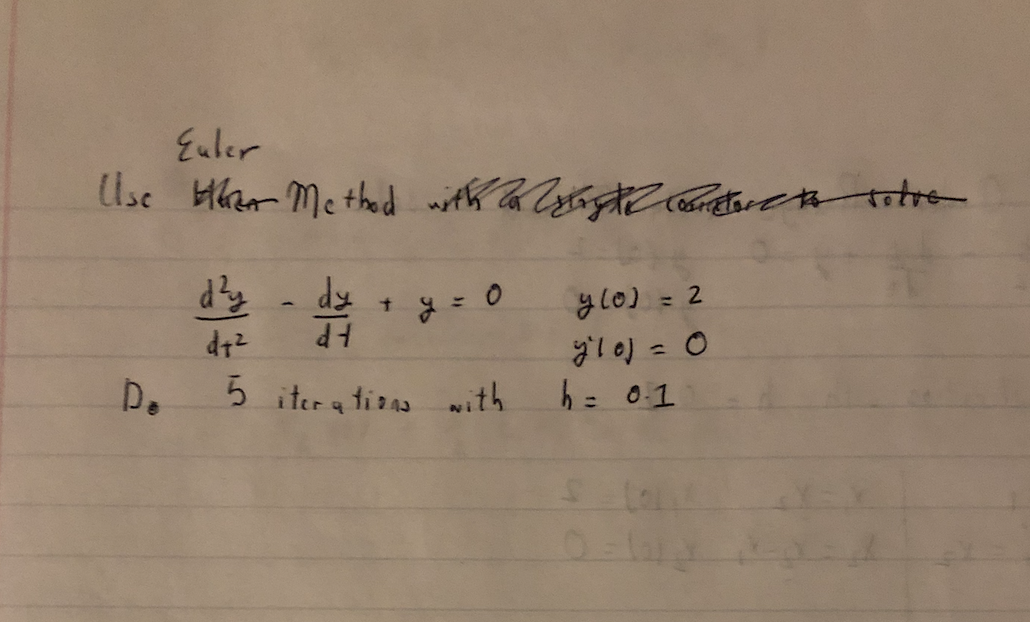 Euler
Use Method
d²y/dt² - dy/dt + y = 0 y(0) = 2
y'(0) = 0
Do 5 iterations with h = 0.1